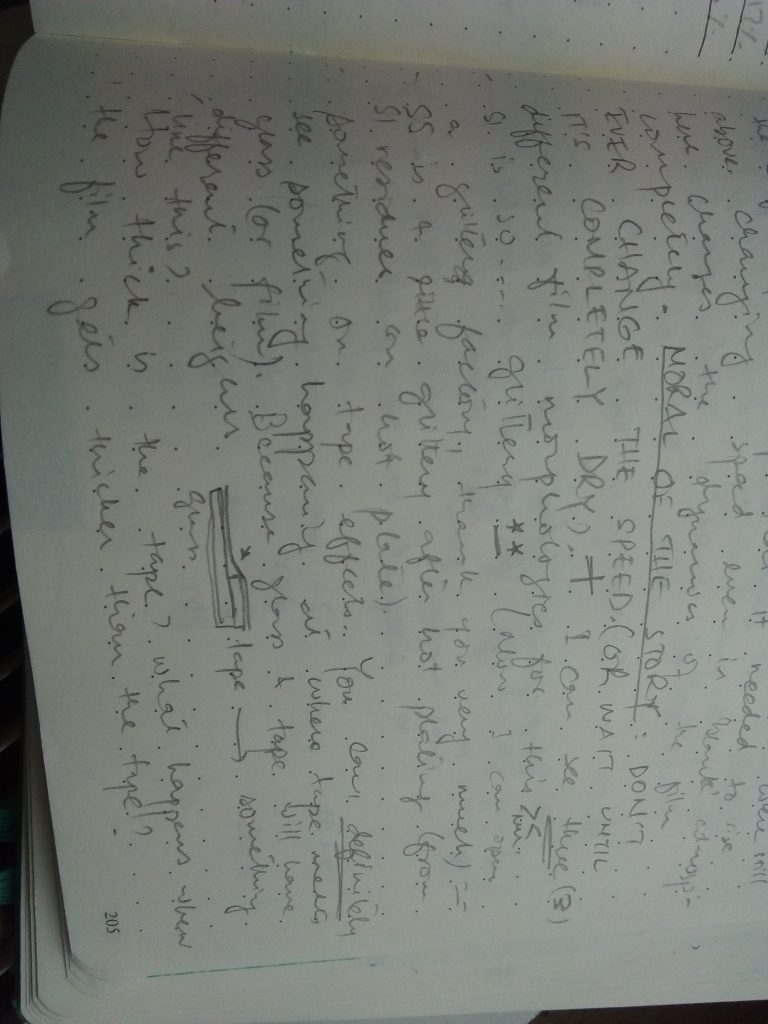 17%
%
the it needed
above changing speed even in to rise
here changes the dynamics of the film
completely. MORAL OF THE STORY: DON'T
EVER CHANGE THE SPEED. (OR WAIT UNTIL
IT'S COMPLETELY DRY). I can see three (3)
different film morphologies for this
S1 is so.... glittery ** (now I can open
a glittery factory, thank you very much) –
- S5 is a little glittery after hot plating (from
S1 residues on hot plate).
- Something on tape effects. You can definitely
see something happening at where tape meets
glass (or film). Because glass & tape will have
different heights. tape → something
glass
- like this?
How thick is the tape? What happens when
the film gets thicker than the tape?
205